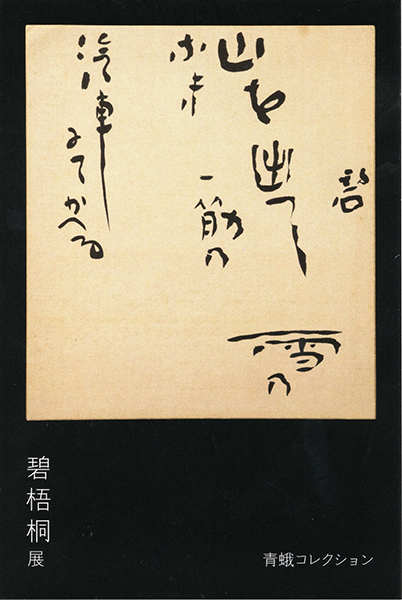 碧
山を出て雪の
なき一筋の
汽車にてかへる
碧梧桐展
青蛾コレクション